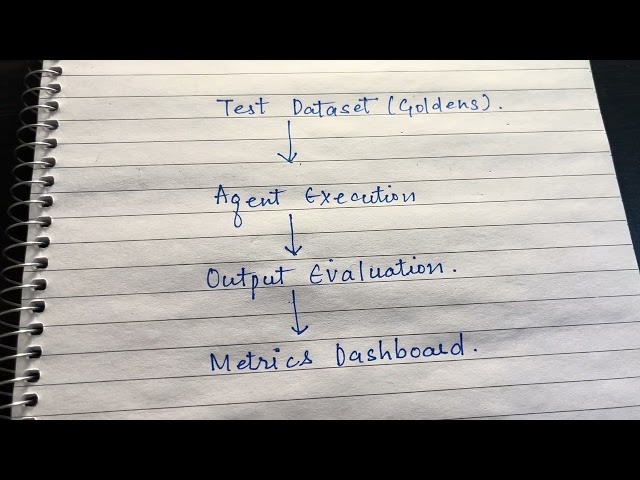 Test Dataset (Goldens).
Agent Execution
Output Evaluation.
Metrics Dashboard.